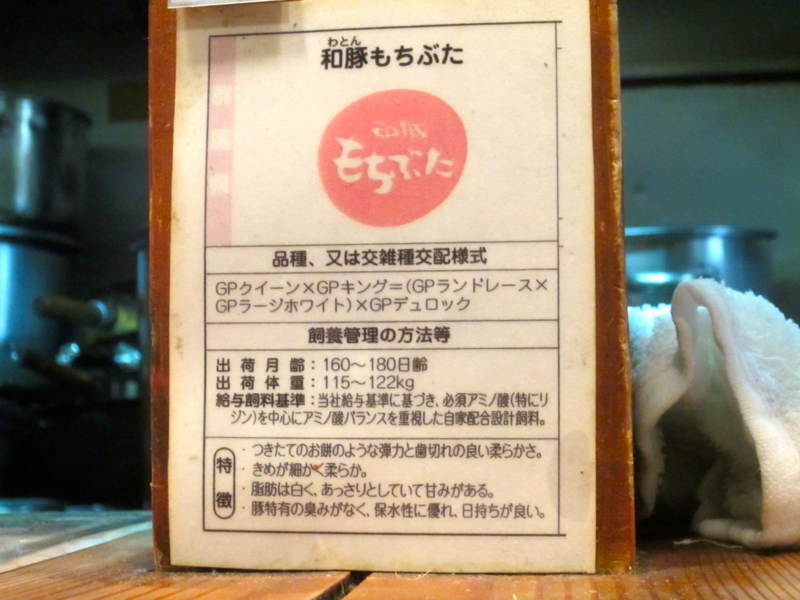 わとん
和豚もちぶた
群馬県
和豚
もちぶた
品種、又は交雑種交配様式
GPクイーン×GPキング=(GPランドレース×
GPラージホワイト)×GPデュロック
飼養管理の方法等
出荷月齢：160〜180日齢
出荷体重：115〜122kg
給与飼料基準：当社給与基準に基づき、必須アミノ酸(特にリ
ジン)を中心にアミノ酸バランスを重視した自家配合設計飼料。
特徴
・つきたてのお餅のような弾力と歯切れの良い柔らかさ。
・きめが細かく柔らか。
・脂肪は白く、あっさりとしていて甘みがある。
・豚特有の臭みがなく、保水性に優れ、日持ちが良い。